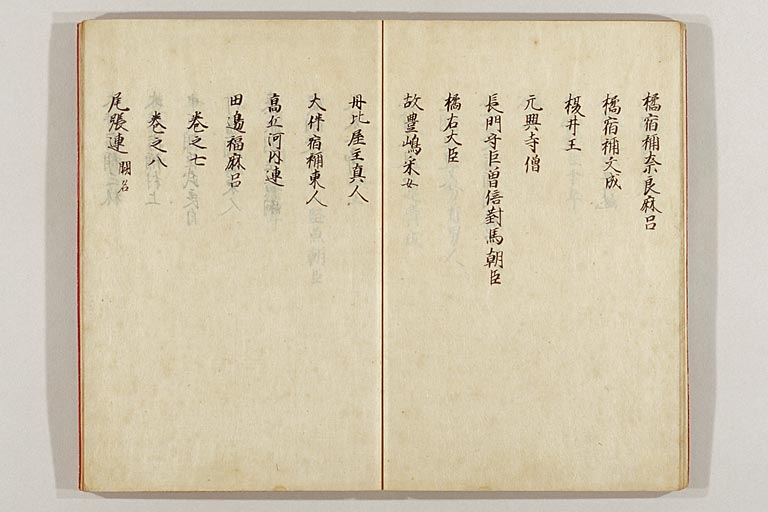 橘宿祢奈良麻呂
橘宿祢文成
榎井王
元興寺僧
長門守巨曽倍對馬朝臣
橘右大臣
故豊嶋采女
丹比屋主真人
大伴宿祢東人
高丘河内連
田邊福麻呂
巻之七
巻之八
尾張連 闕名